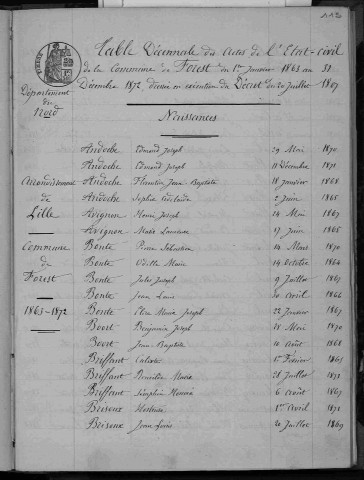 Table Décennale des Actes de l'Etat-civil
de la Commune de Forest du 1er Janvier 1863 au 31
Décembre 1872, dressée en exécution du Décret du 20 Juillet 1807
Naissances
Département
du
Nord
Arrondissement
de
Lille
Commune
de
Forest
1863-1872
Andoche Edmond Joseph 29 Mai 1870
Andoche Edmond Joseph 11 Décembre 1871
Andoche Florentin Jean-Baptiste 18 Janvier 1868
Andoche Sophie Adélaïde 2 Juin 1865
Avignon Henri Joseph 24 Mai 1867
Avignon Marie Laurence 17 Juin 1865
Bonte Pierre Sébastien 14 Mars 1870
Bonte Odille Marie 14 Octobre 1864
Bonte Jules Joseph 9 Juillet 1863
Bonte Jean Louis 30 Avril 1866
Bonte Elise Marie Joseph 22 Janvier 1867
Boort Benjamin Joseph 18 Mai 1870
Boort Jean-Baptiste 10 Août 1868
Briffaut Calixte 1er Février 1865
Briffaut Roméline Marie 28 Juillet 1871
Briffaut Séraphin Honoré 6 Août 1867
Brisoux Hortense 1er Avril 1871
Brisoux Jean Louis 20 Juillet 1869